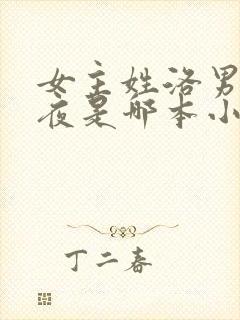 女主姓洛男
夜是哪本小
丁二春